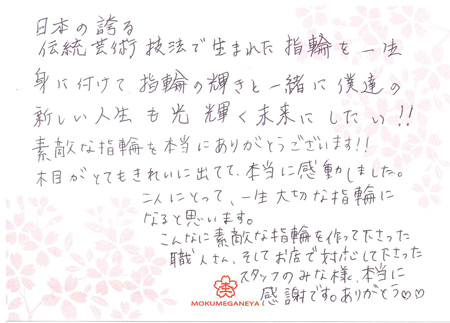 日本の誇る
伝統芸術技法で生まれた指輪を一生
身に付けて指輪の輝きと一緒に僕達の
新しい人生も光輝く未来にしたい!!
素敵な指輪を本当にありがとうございます!!
木目がとてもきれいに出てて、本当に感動しました。
二人にとって、一生大切な指輪に
なると思います。
こんなに素敵な指輪を作って下さった
職人さん、そしてお店で対応して下さった
スタッフのみな様、本当に
感謝です。ありがとう♡♡
MOKUMEGANEYA